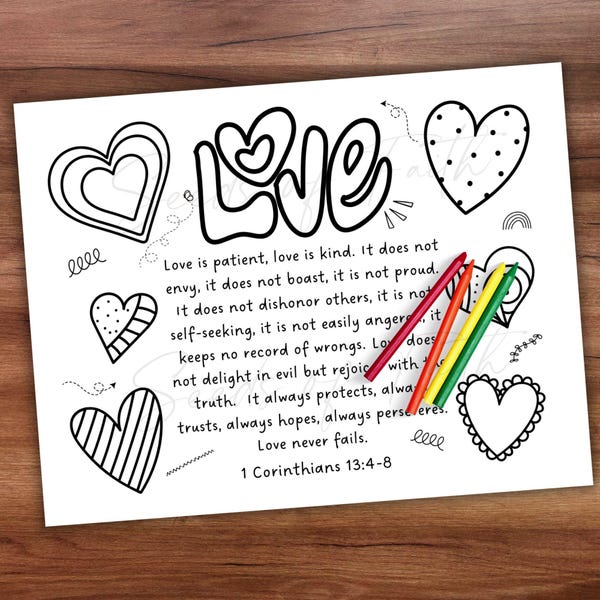 Love
Love is patient, love is kind. It does not
envy, it does not boast, it is not proud.
It does not dishonor others, it is not
self-seeking, it is not easily angered, it
keeps no record of wrongs. Love does
not delight in evil but rejoices with
truth. It always protects, always
trusts, always hopes, always perseveres.
Love never fails.
1 Corinthians 13:4-8
Seeds of Faith
Seeds of Faith